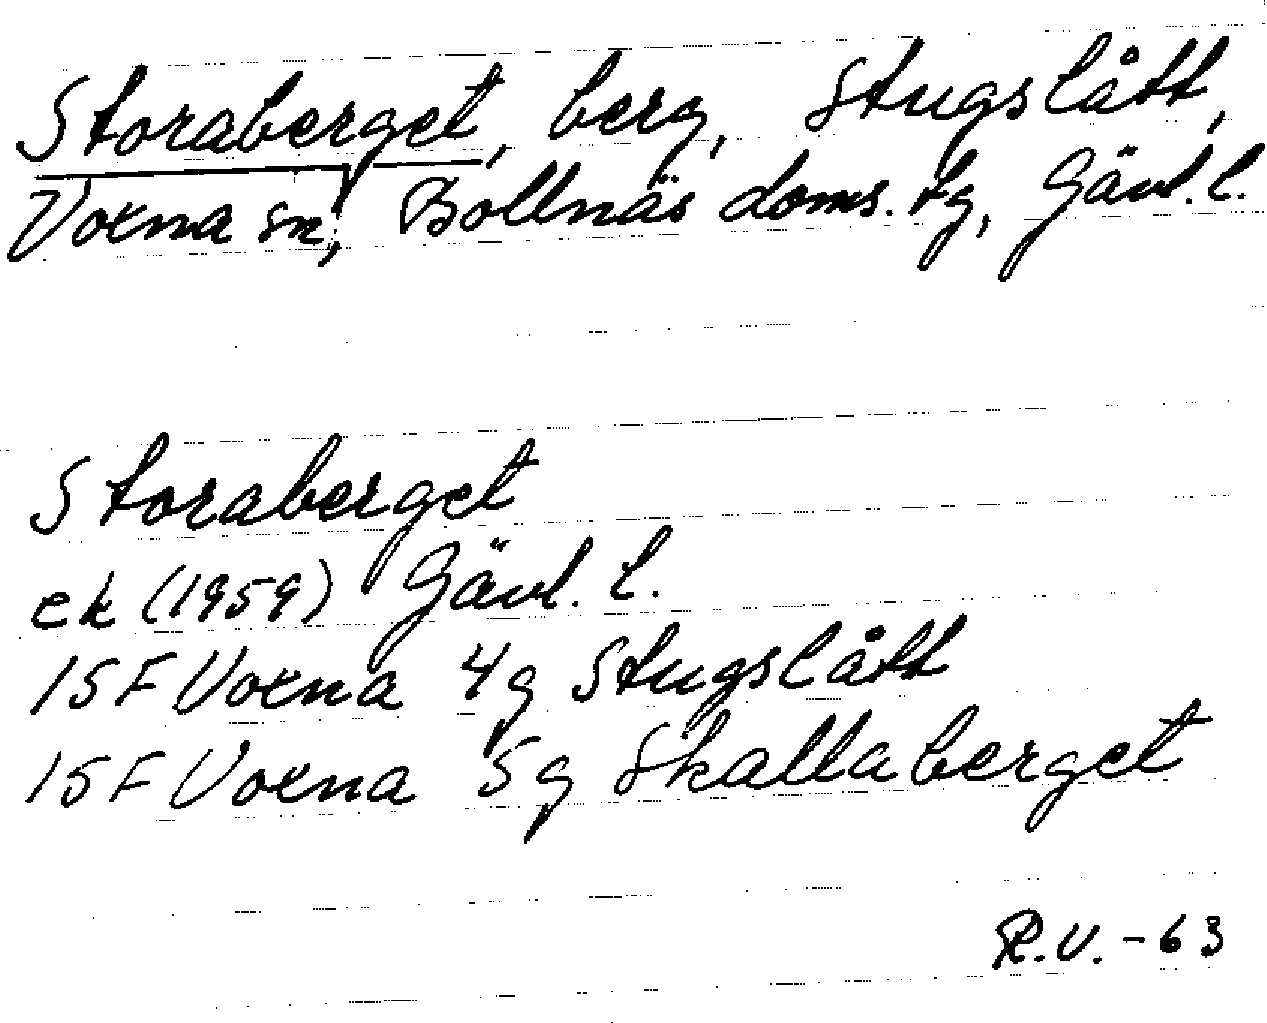 Storaberget, berg, Stugslått,
Voxna sn, Bollnäs doms. tg, Gävl. l.
Storaberget
ek (1959) Gävl. l.
15F Voxna 4g Stugslått
15F Voxna 5g Skallaberget
R.V. - 63